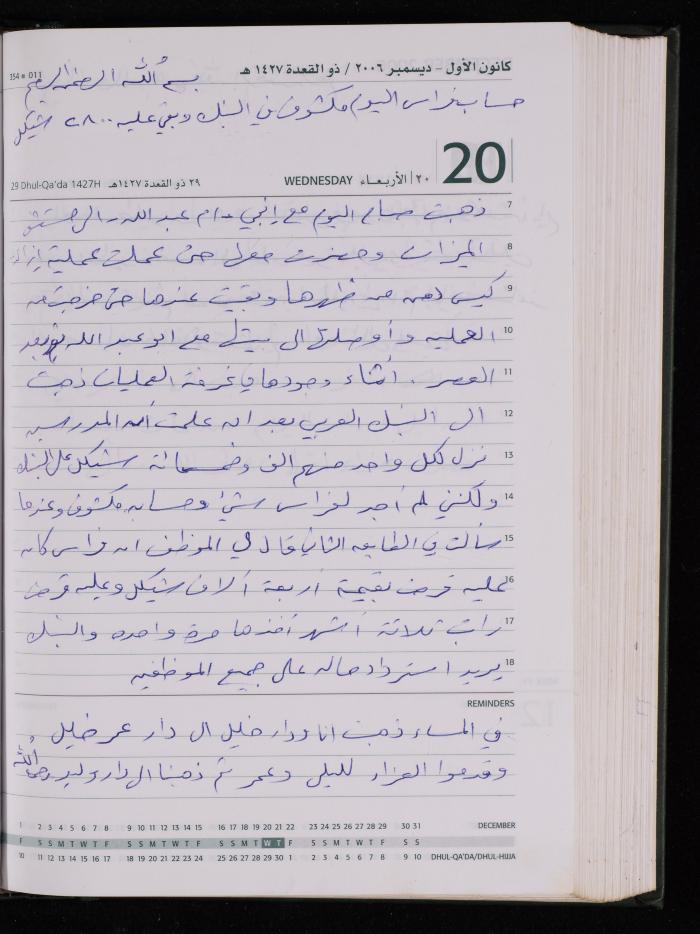 كانون الأول - ديسمبر ٢٠٠٦ / ذو القعدة ١٤٢٧ هـ
354 * 011
بسم الله الرحمن الرحيم
حساب فراس اليوم مكشوف في البنك وبقي عليه ٢٨٠٠ شيكل
20
٢٠ | الأربعاء WEDNESDAY
٢٩ ذو القعدة ١٤٢٧هـ 29 Dhul-Qa'da 1427H
7 ذهبت صباح اليوم مع ام عبد الله الى مستشفى
8 الميزان وحضرت معها حتى عملت عملية إزالة
9 كيس دهن من ظهرها وبقيت عندها حتى خرجت من
10 العملية وأوصلتها الى بيتها مع ابو عبد الله بعد
11 العصر . أثناء وجودها في غرفة العمليات ذهبت
12 الى البنك العربي بعد ان علمت أن المدرسين
13 نزل لكل واحد منهم الف وخمسمائة شيكل على البنك
14 ولكنني لم أجد لفراس شيئ وحسابه مكشوف وعندما
15 سألت في الطابق الثاني قال لي الموظف ان فراس كان
16 عليه قرض بقيمة أربعة آلاف شيكل وعليه قرض
17 راتب ثلاثة أشهر أخذها مرة واحده والبنك
18 يريد استرداد ماله على جميع الموظفين
REMINDERS
في المساء ذهبت انا ودار خليل الى دار عمر خليل
وقدموا العزاء لليلى وعمر ثم ذهبنا الى دار وليد رحمه الله
1 2 3 4 5 6 7 8 9 10 11 12 13 14 15 16 17 18 19 20 21 22 23 24 25 26 27 28 29 30 31 DECEMBER
F S S M T W T F S S M T W T F S S M T W T F S S M T W T F S S
10 11 12 13 14 15 16 17 18 19 20 21 22 23 24 25 26 27 28 29 30 1 2 3 4 5 6 7 8 9 10 DHUL-QA'DA/DHUL-HIJJA